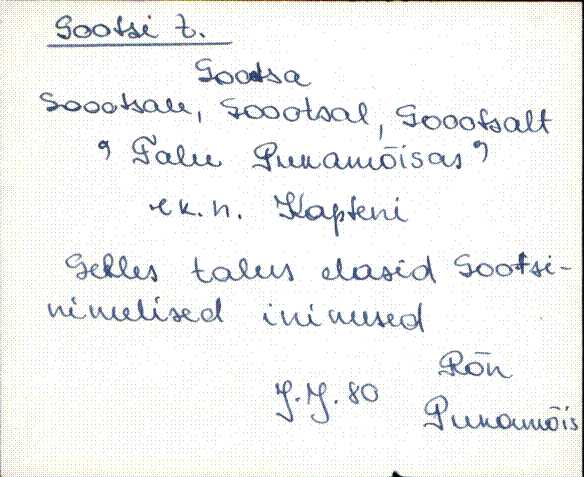 Sootsi t.
Sootsa
Soootsau, Soootsal, Soootsalt
‘Talu Punamõisas’
ek.n. Kapteni
Selles talus elasid Sootsi-
nimelised inimesed
Rõn
J.J.80
Punamõis